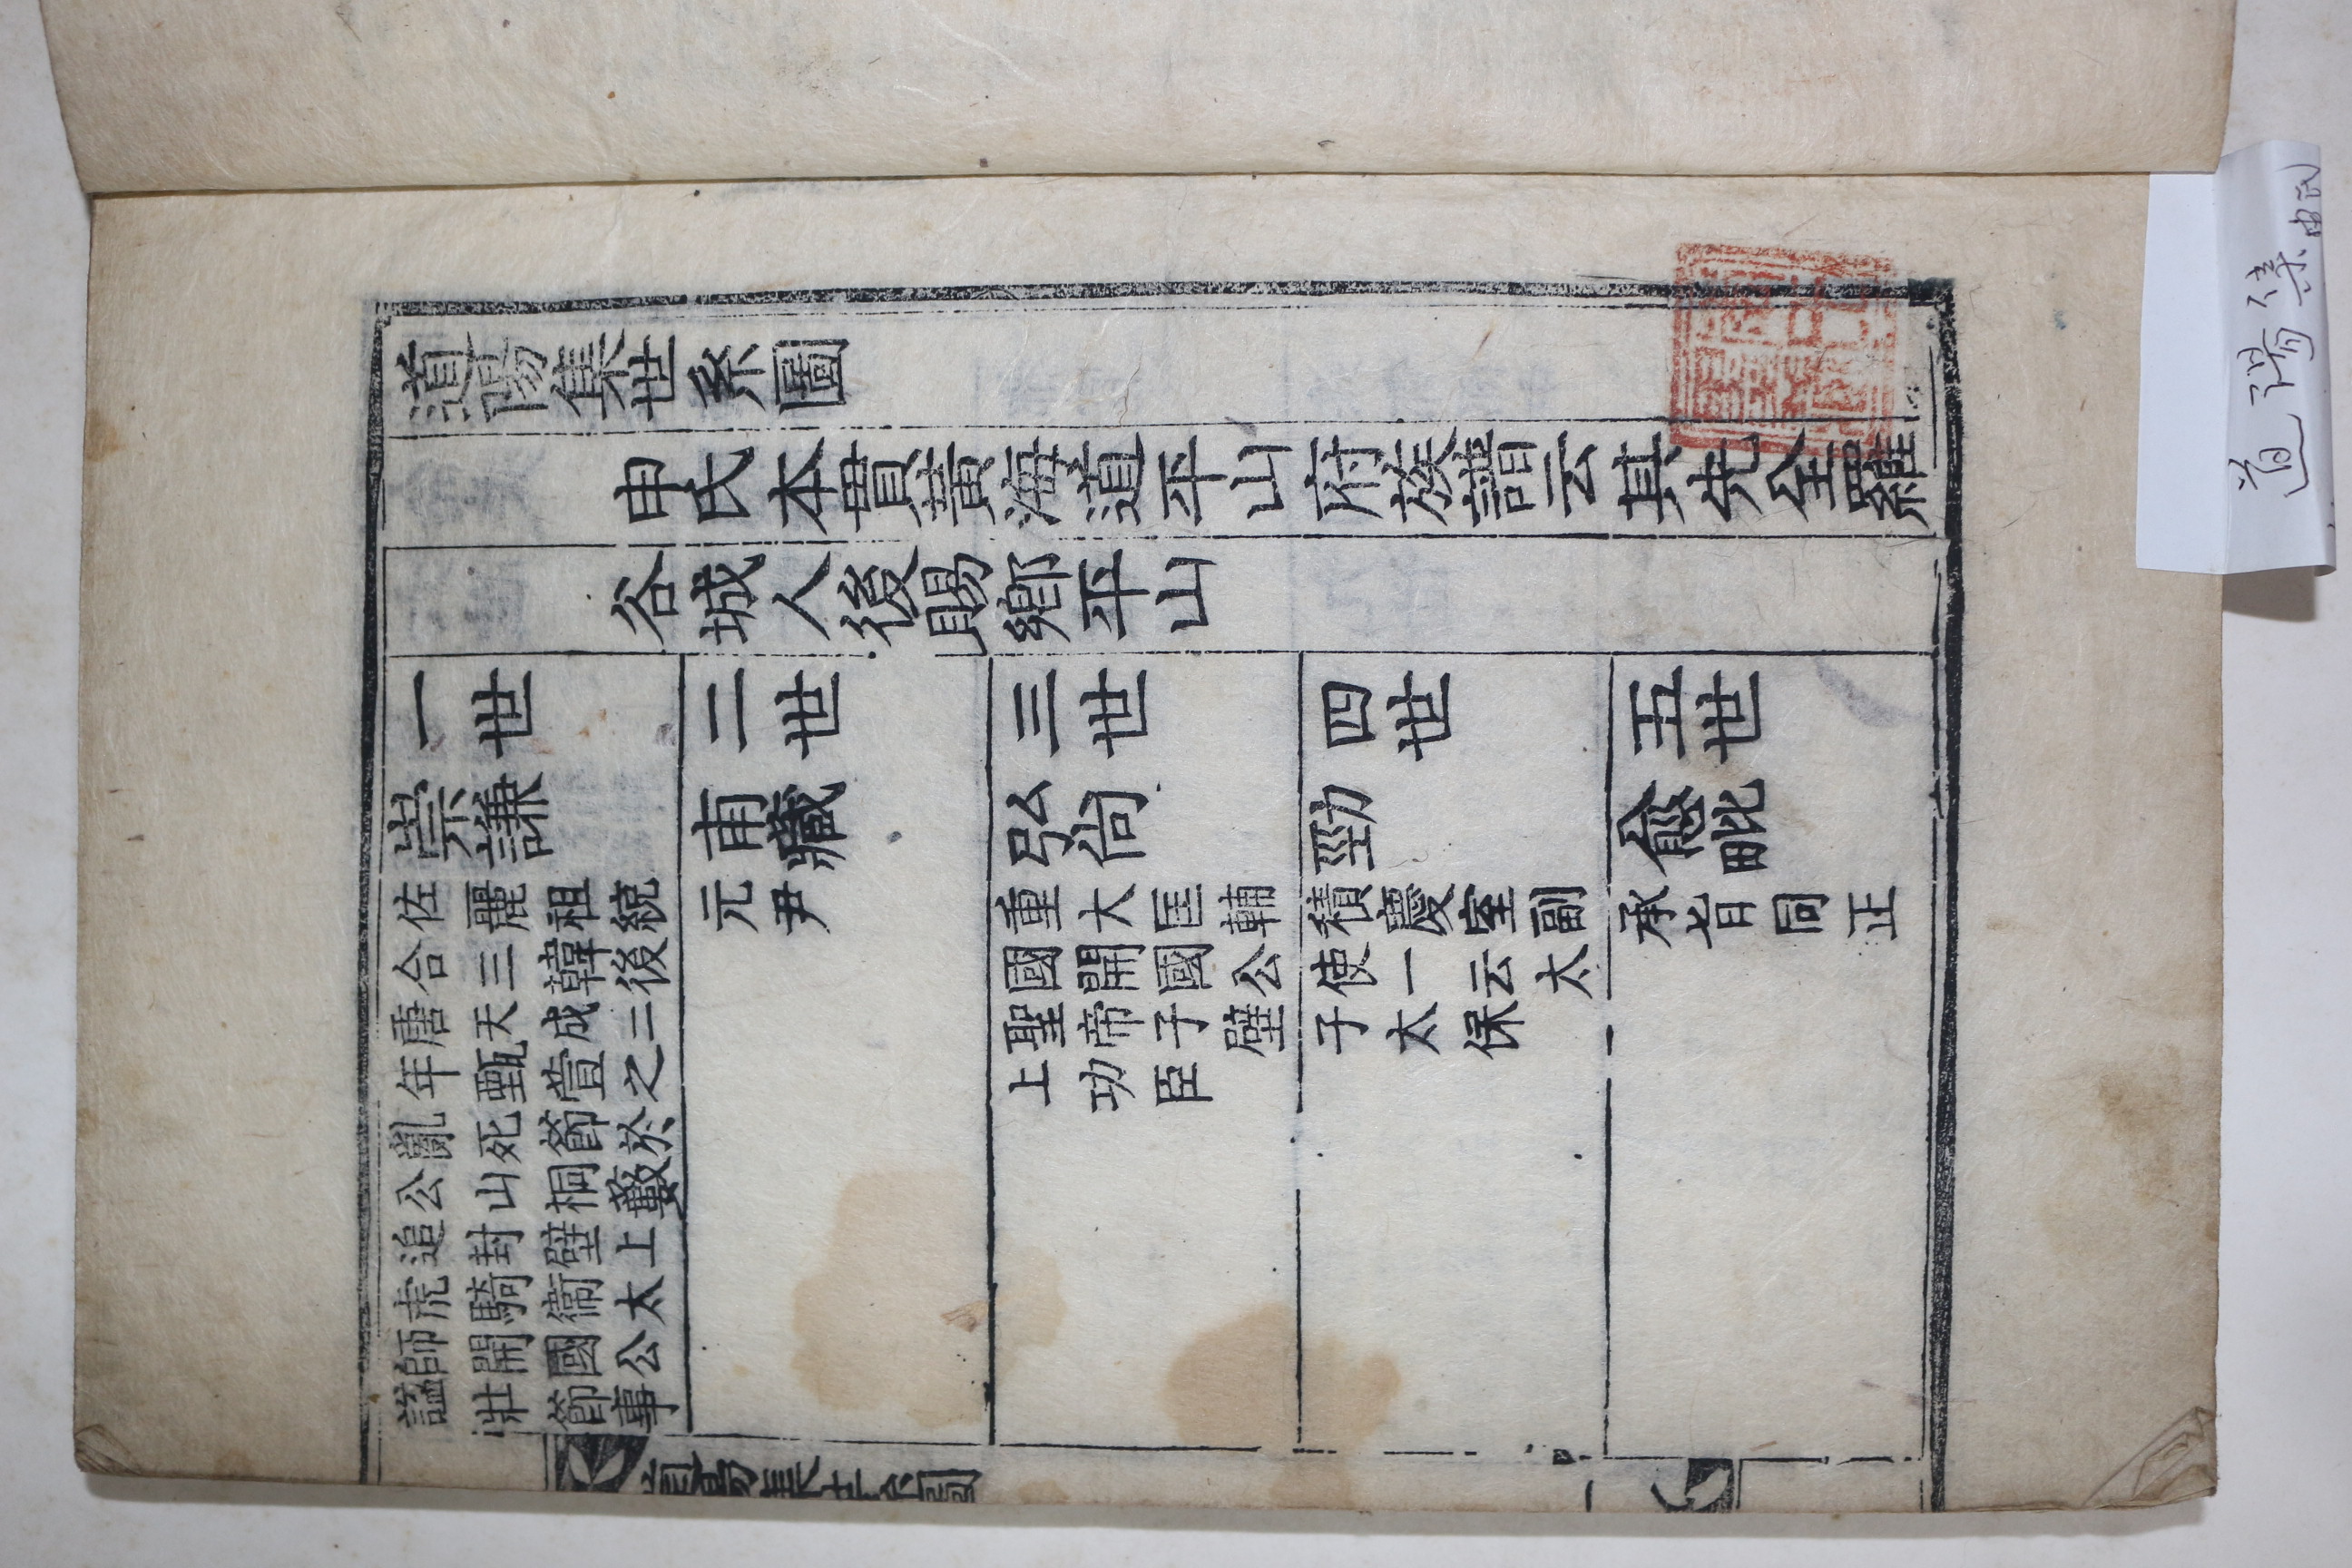 道陽集世系圖
申氏本貫黃海道平山府族譜云其先全羅
谷城人後賜鄉平山
一世
崇謙
佐麗祖統
合三韓後
唐天成二
年甄萱之
亂死節於
公山桐藪
追封壁上
虎騎衞太
師開國公
諡壯節事
二世
甫藏
元尹
三世
弘尚
重大匡輔
國開國公
聖帝子壁
上功臣
四世
勁
積慶室副
使一云太
子太保
五世
愈毗
承旨同正
道陽集世系圖
一
道陽集
申氏